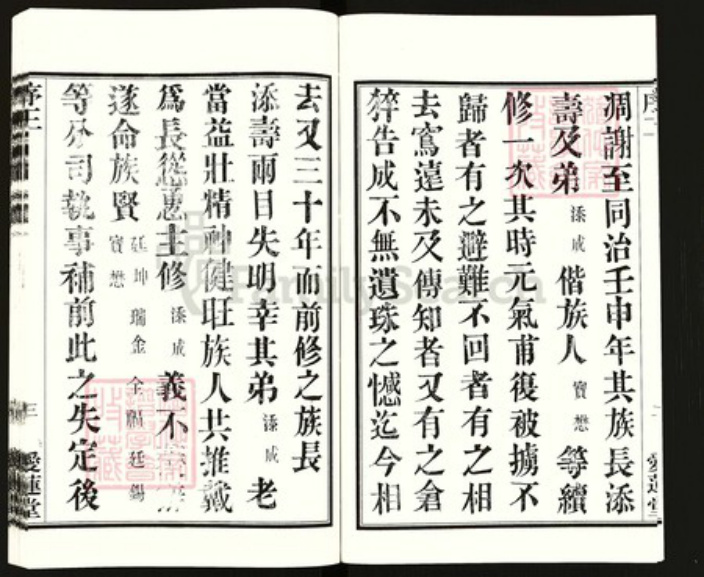 凋謝至同治壬申年其族長添
壽及弟添成偕族人寶懋等續
修一次其時元氣甫復被擄不
歸者有之避難不回者有之相
去窵遠未及傳知者又有之倉
猝告成不無遺珠之憾迄今相
愛蓮堂
去又三十年而前修之族長
添壽兩目失明幸其弟添成老
當益壯精神健旺族人共推戴
為長從惠主修添成義不
遂命族賢廷坤寶懋瑞金全福廷錫
等分司執事補前此之失定後
序
三
愛蓮堂
FamilySearch